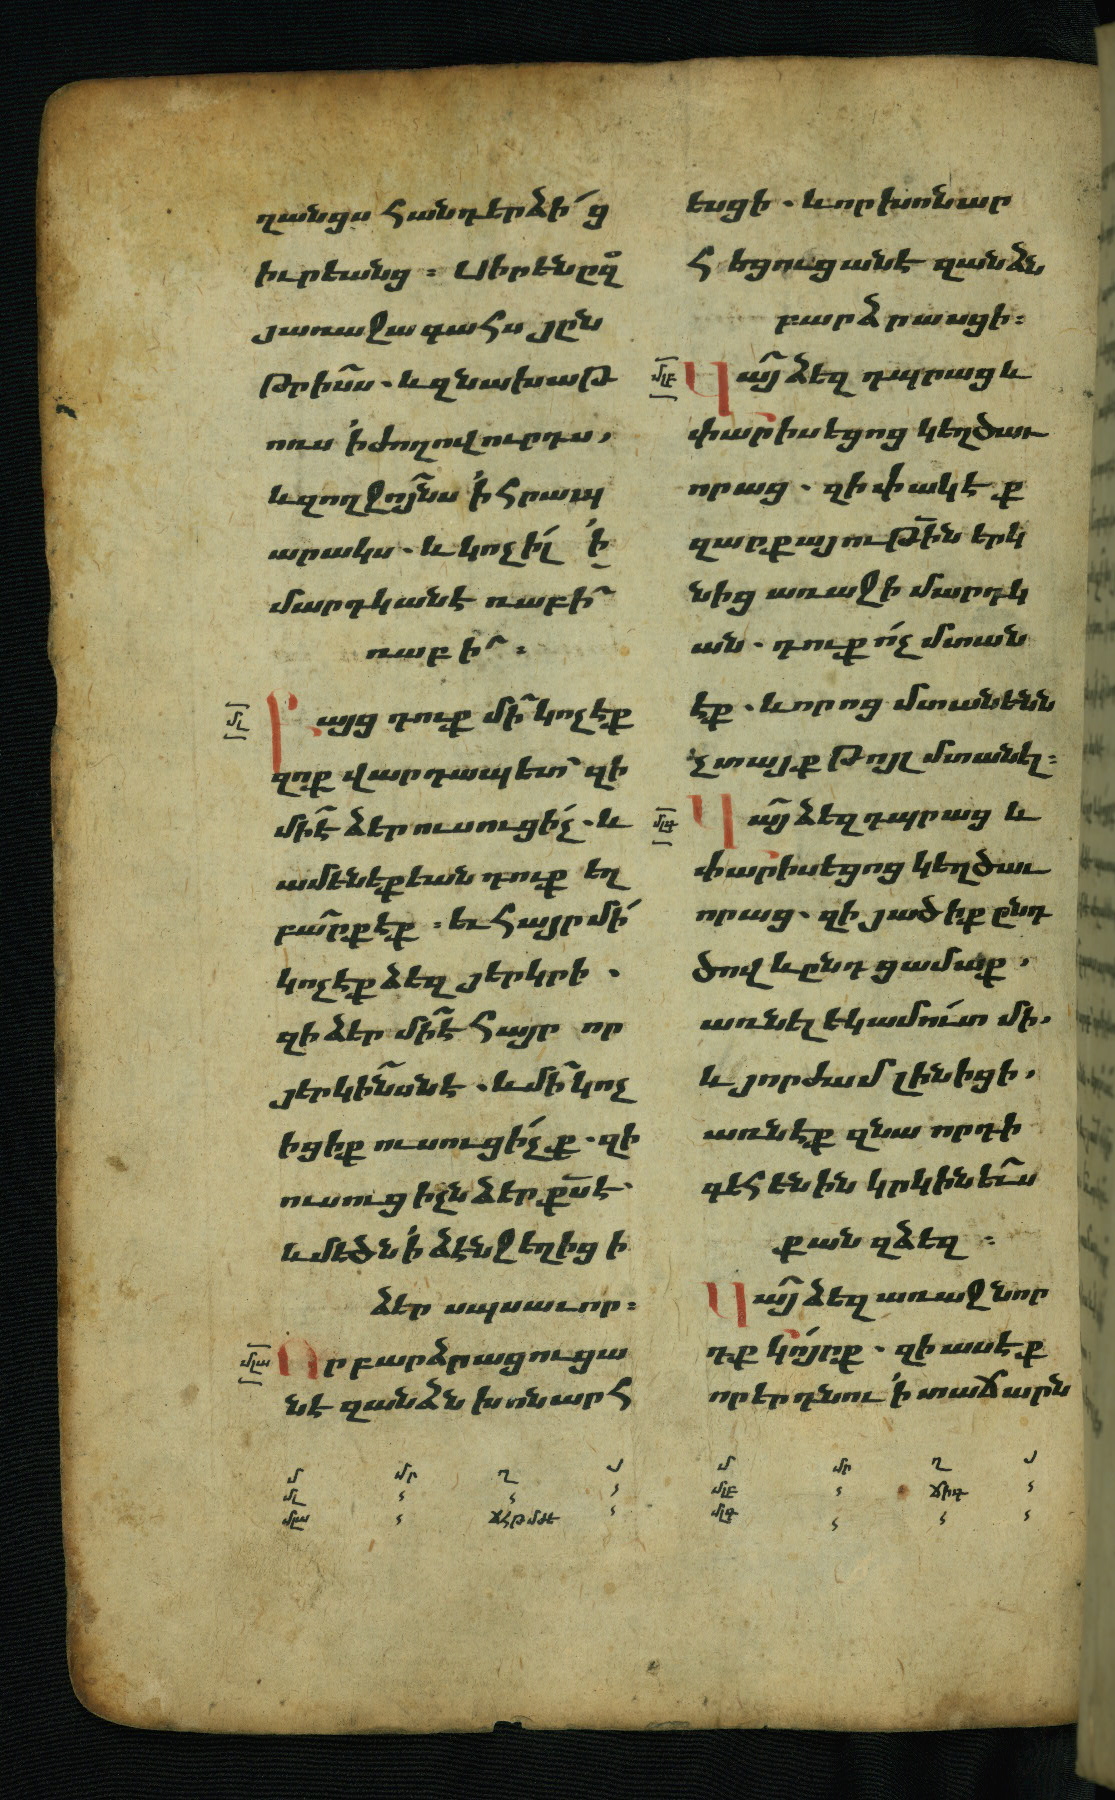 ղանցս հանդերձի՛ց
իւրեանց ։ Սիրենըզ
յառաջագահս յըն
թրի՞ս · և զնախաթ
ոռս ՛ի ժողովուրդս ,
և զողջոյ՞նս ՛ի հրապ
արակս · և կոչի՛լ ՛ի
մարդկանէ ռաբի՞
ռաբի՞ ։
մլ
Բայց դուք մի՞ կոչէք
զոք վարդապետ՞ զի
մի՞է ձեր ուսուցի՛չ · և
ամենեքեան դուք եղ
բա՞րք էք ։ եւ հայր մի՛
կոչէք ձեզ յերկրի ·
զի ձեր մի՞է հայր որ
յերկի՞նսնէ · և մի՞ կոչ
իցիք ուսուցի՛չք · զի
ուսուցիչն ձեր ք՞սէ ·
և մեծն ՛ի ձէնջ եղիցի
ձեր սպսաւոր ։
մլա
Որ բարձրացուցա
նէ զանձն խոնարհ
եսցի · և որ խոնար
հեցուցանէ զանձն
բարձրասցի ։
մլբ
Վա՞յ ձեզ դպրաց և
փարիսեցոց կեղծաւ
որաց · զի փակէք
զարքայութի՞ն երկ
նից առաջի մարդկ
ան · դուք ո՛չ մտան
էք · և որոց մտանենն
չտայք թոյլ մտանել ։
մլգ
Վա՞յ ձեզ դպրաց և
փարիսեցոց կեղծաւ
որաց · զի յածիք ընդ
ծով և ընդ ցամաք ,
առնել եկամու՛տ մի ,
և յորժամ լինիցի ,
առնէք զնա որդի
գեհենին կրկին ե՞ս
քան զձեզ ։
Վա՞յ ձեզ առաջնոր
դք կո՛յրք · զի ասէք
որ երդնու ՛ի տաճարն
մ մր ղ յ
մլ
մլա ճհթ մժե
մ մր ղ յ
մլբ ճիգ
մլգ